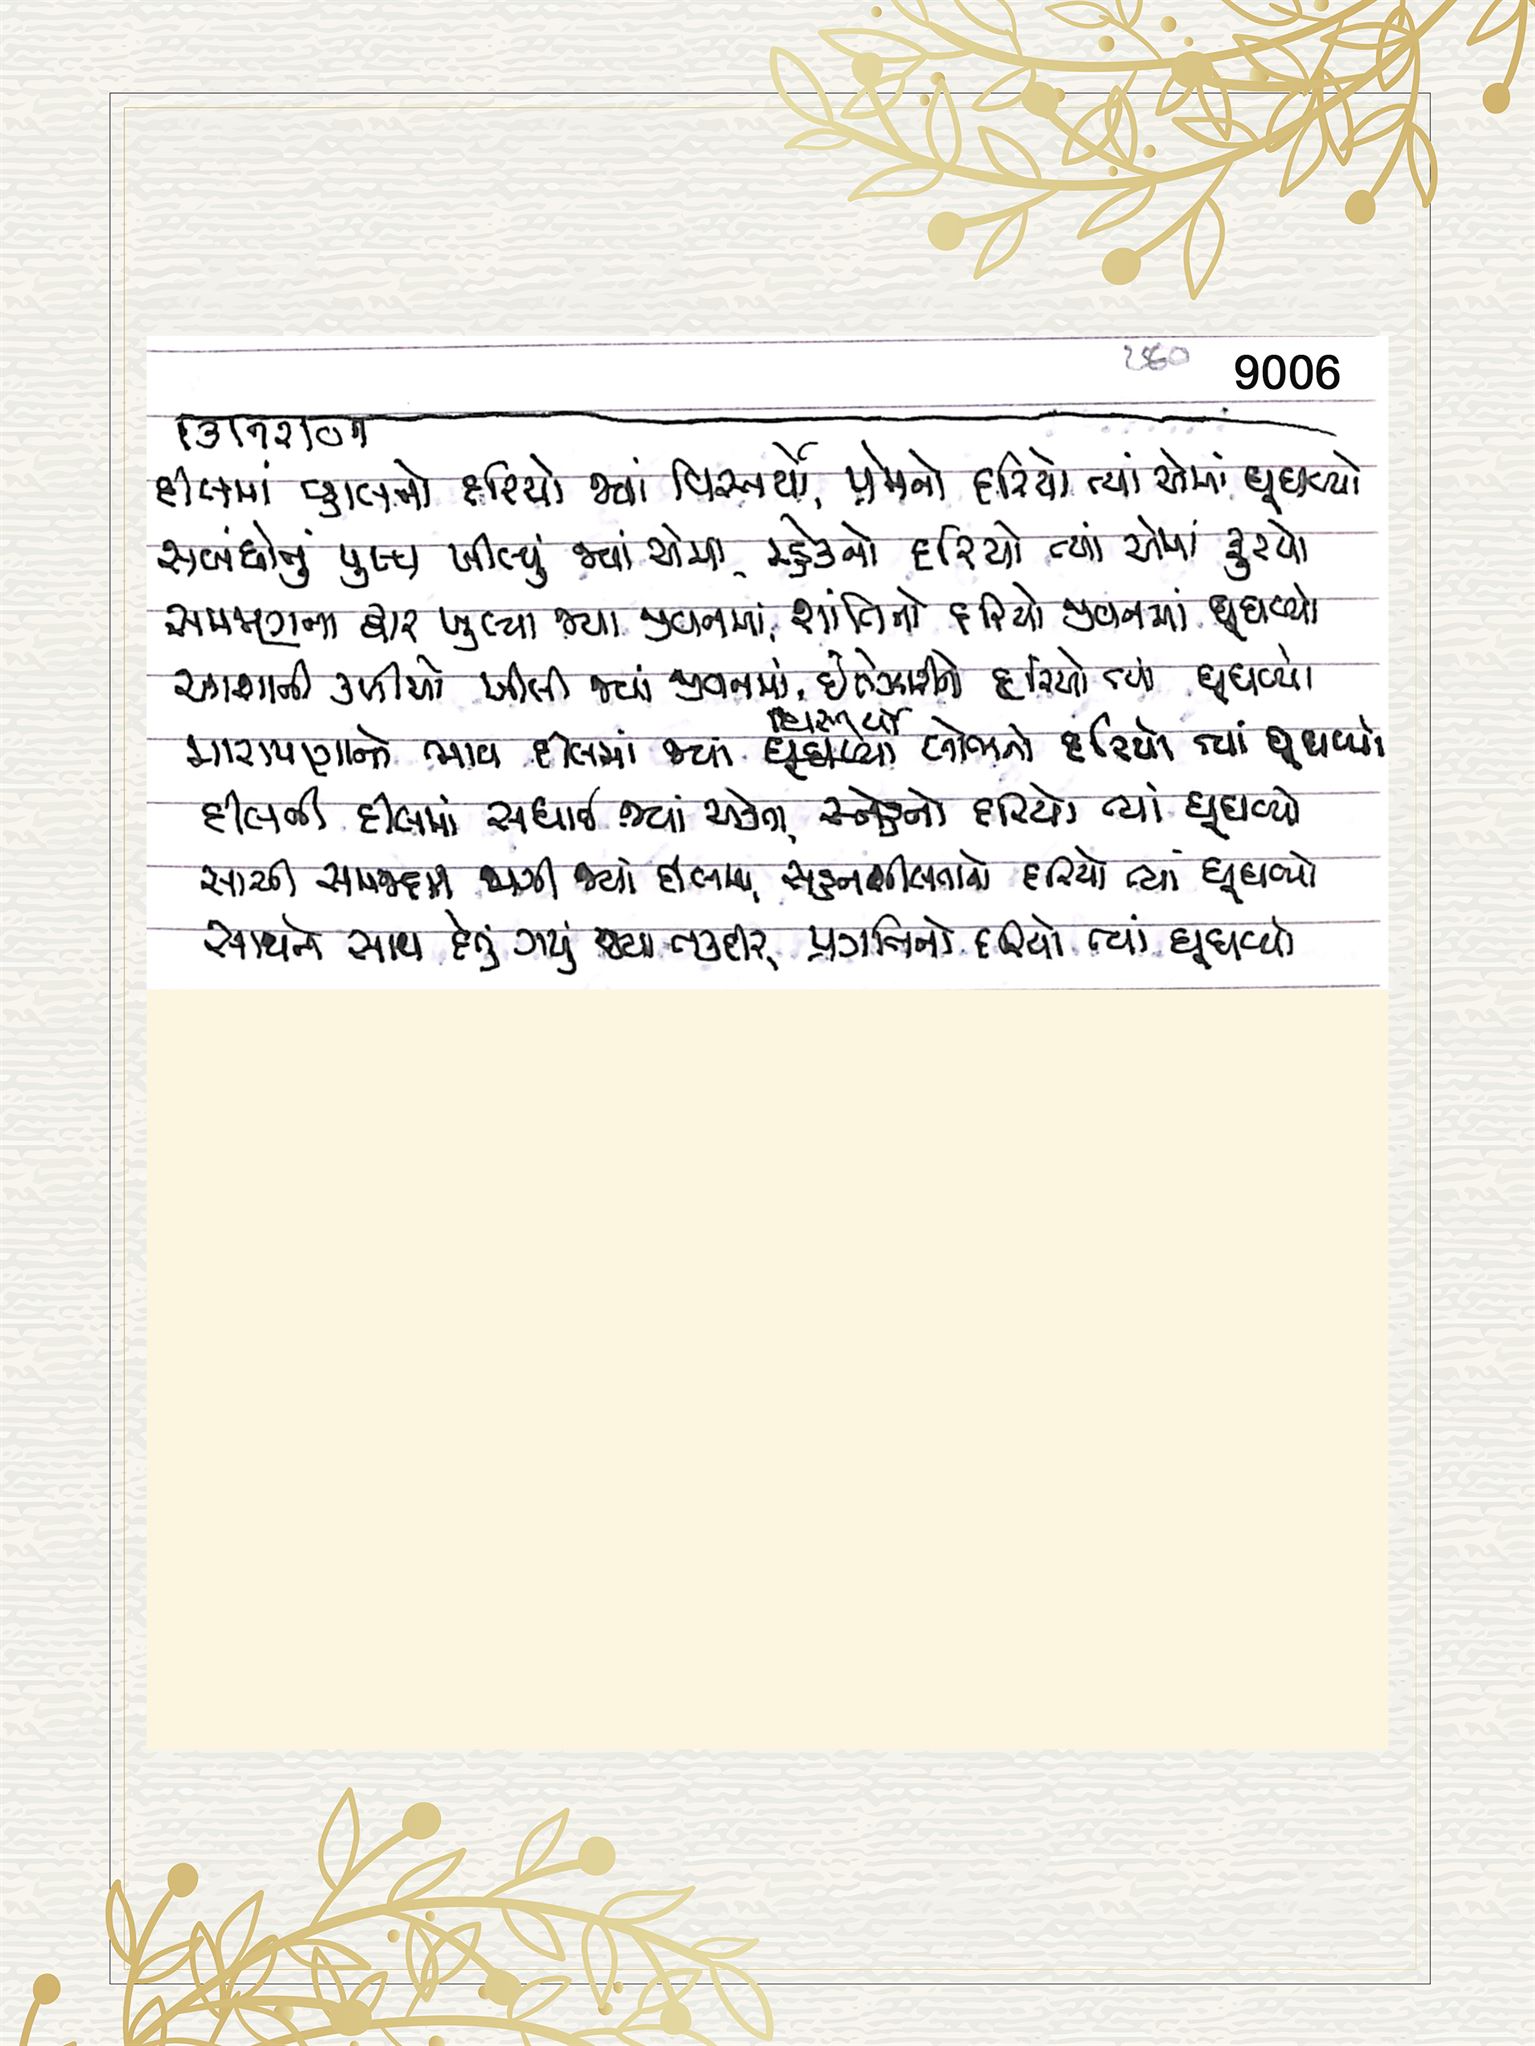 9006
૧૩।૧૨।૦૧
દીલમાં વ્હાલનો દરિયો જ્યાં વિસ્તર્યો, પ્રેમનો દરિયો ત્યાં એમાં ઘૂઘવ્યો
સબંધોનું પુષ્પ ખીલ્યું જ્યાં એમા, દરિયો ત્યાં એમાં
સમજણના દ્વાર ખુલ્યા જ્યા જીવનમાં, શાંતિનો દરિયો જીવનમાં ઘૂઘવ્યો
આશાની કળીયો ખીલી જ્યાં જીવનમાં, દરિયો ત્યાં ઘૂઘવ્યો
વિસ્તર્યો
મારાપણાનો ભાવ દીલમાં જ્યાં ઘૂઘવ્યો દરિયો ત્યાં ઘૂઘવ્યો
દીલની દીલમાં સધાઈ જ્યાં એકતા, સ્નેહનો દરિયો ત્યાં ઘૂઘવ્યો
સાચી સમજદારી જાગી જ્યાં દીલમાં, સહનશીલતાનો દરિયો ત્યાં ઘૂઘવ્યો
સાથને સાથ દેતું ગયું જ્યા તકદીર, પ્રગતિનો દરિયો ત્યાં ઘૂઘવ્યો